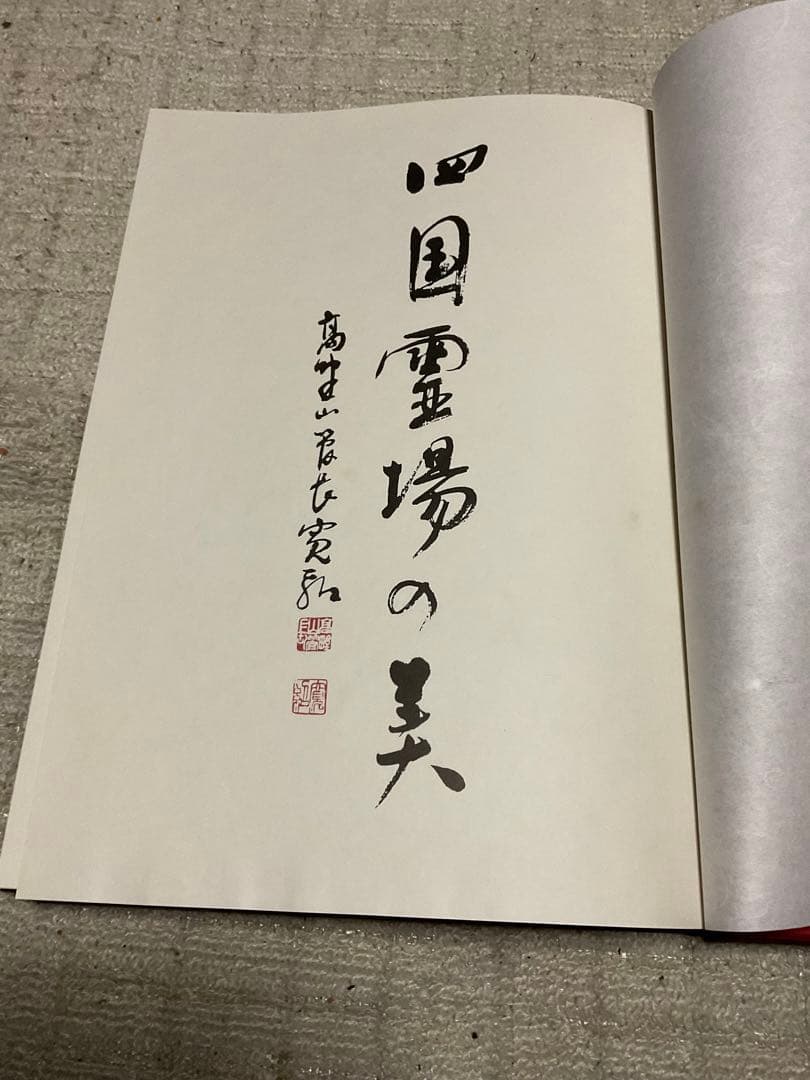 四国霊場の美
高野山管長寛弘